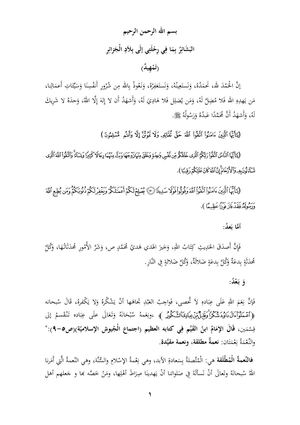 بسم الله الرحمن الرحيم
البَشَائِرُ بِمَا فِي رِحْلَتِي إِلَى بِلَادِ الْجَزَائِرِ
(تمهيدٌ)
إِنَّ الْحَمْدَ لِلَّهِ، نَحْمَدُهُ، وَنَسْتَعِينُهُ، وَنَسْتَغْفِرُهُ، وَنَعُوذُ بِاللهِ مِنْ شُرُورِ أَنْفُسِنَا وَسَيِّئَاتِ أَعْمَالِنَا،
مَن يَهدِهِ اللهُ فَلا مُضِلَّ لَهُ، وَمَن يُضلِل فَلا هَادِيَ لَهُ، وَأَشهَدُ أَن لا إلهَ إلَّا اللهُ، وَحدَهُ لا شَرِيكَ
لَهُ، وَأَشهَدُ أَنَّ مُحَمَّدًا عَبدُهُ وَرَسُولُهُ ﷺ.
﴿يَاأَيُّهَا الَّذِينَ آمَنُوا اتَّقُوا اللَّهَ حَقَّ تُقَاتِهِ وَلَا تَمُوتُنَّ إِلَّا وَأَنْتُمْ مُسْلِمُونَ﴾.
﴿يَاأَيُّهَا النَّاسُ اتَّقُوا رَبَّكُمُ الَّذِي خَلَقَكُمْ مِنْ نَفْسٍ وَاحِدَةٍ وَخَلَقَ مِنْهَا زَوْجَهَا وَبَثَّ مِنْهُمَا رِجَالًا كَثِيرًا وَنِسَاءً وَاتَّقُوا اللَّهَ الَّذِي
تَسَاءَلُونَ بِهِ وَالْأَرْحَامَ إِنَّ اللَّهَ كَانَ عَلَيْكُمْ رَقِيبًا﴾.
﴿يَاأَيُّهَا الَّذِينَ آمَنُوا اتَّقُوا اللَّهَ وَقُولُوا قَوْلًا سَدِيدًا يُصْلِحْ لَكُمْ أَعْمَالَكُمْ وَيَغْفِرْ لَكُمْ ذُنُوبَكُمْ وَمَنْ يُطِعِ اللَّهَ
وَرَسُولَهُ فَقَدْ فَازَ فَوْزًا عَظِيمًا﴾.
أمَّا بَعدُ:
فَإِنَّ أَصدَقَ الحَدِيثِ كِتَابُ اللهِ، وَخَيرَ الهَديِ هَديُ مُحَمَّدٍ ص، وَشَرَّ الأُمُورِ مُحدَثَاتُهَا، وَكُلَّ
مُحدَثَةٍ بِدعَةٌ وَكُلَّ بِدعَةٍ ضَلالَةٌ، وَكُلَّ ضَلالَةٍ فِي النَّارِ.
وَ بَعْدُ:
فَإِنَّ نِعَمَ اللهِ عَلَى عِبَادِهِ لَا تُحصى، فواجب العَبْدِ تجاهها أَنْ يَشْكُرَهُ وَلَا يَكْفُرَهُ، قَالَ سُبحانه
﴿اعْمَلُوا آلَ دَاوُودَ شُكْرًا وَقَلِيلٌ مِنْ عِبَادِيَ الشَّكُورُ﴾، ونِعمةُ سُبحانَهُ وَتَعَالَى عَلَى عِبَادِهِ تَنْقَسِمُ إلى
قِسْمَينِ، قَالَ الإمامُ ابنُ القَيِّمِ فِي كِتَابه العظيم (اجتماع الْجُيوش الإسلاميَّة)(ص٥-٩):"
وَالنِّعْمَةُ نِعْمَتَانِ: نعمةٌ مطلقة، ونعمة مقيَّدة.
فالنِّعمةُ الْمُطْلَقة هِيَ: الْمُتَّصِلَةُ بِسَعادةِ الأَبد، وهي نِعْمَةُ الإسْلامِ وَالسُّنَّة، وهي النعمةُ الَّتِي أَمَرنا
اللهُ سُبحانَهُ وَتعالى أَنْ نَسأَلَهُ فِي صَلَواتِنا أَنْ يَهدِيَنا صِرَاطَ أَهْلِهَا، وَمَنْ خصَّه بِها وجعلهم أهل
٩